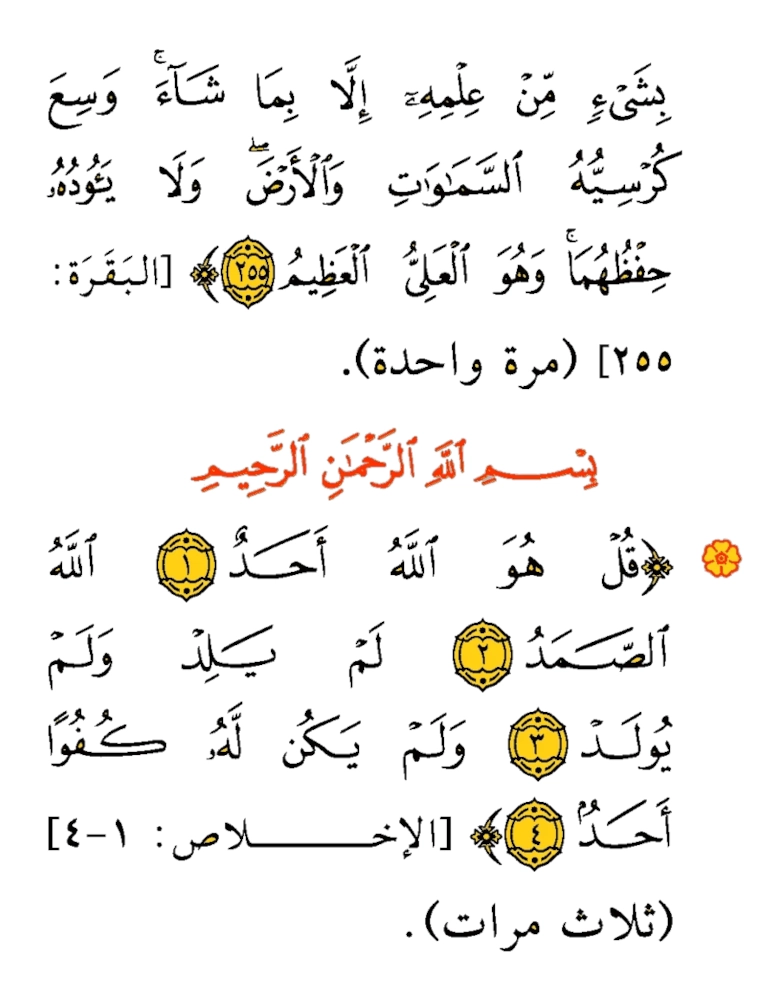 بِشَيۡءٖ مِّنۡ عِلۡمِهِۦٓ إِلَّا بِمَا شَآءَۚ وَسِعَ
كُرۡسِيُّهُ ٱلسَّمَٰوَٰتِ وَٱلۡأَرۡضَۖ وَلَا يَـُٔودُهُۥ
حِفۡظُهُمَاۚ وَهُوَ ٱلۡعَلِيُّ ٱلۡعَظِيمُ ٢٥٥﴾ [البَقَرَة:
٢٥٥] (مرة واحدة).
بِسۡمِ ٱللَّهِ ٱلرَّحۡمَٰنِ ٱلرَّحِيمِ
﴿قُلۡ هُوَ ٱللَّهُ أَحَدٌ ١ ٱللَّهُ
ٱلصَّمَدُ ٢ لَمۡ يَلِدۡ وَلَمۡ
يُولَدۡ ٣ وَلَمۡ يَكُن لَّهُۥ كُفُوًا
أَحَدُۢ ٤﴾ [الإخلاص: ١-٤]
(ثلاث مرات).